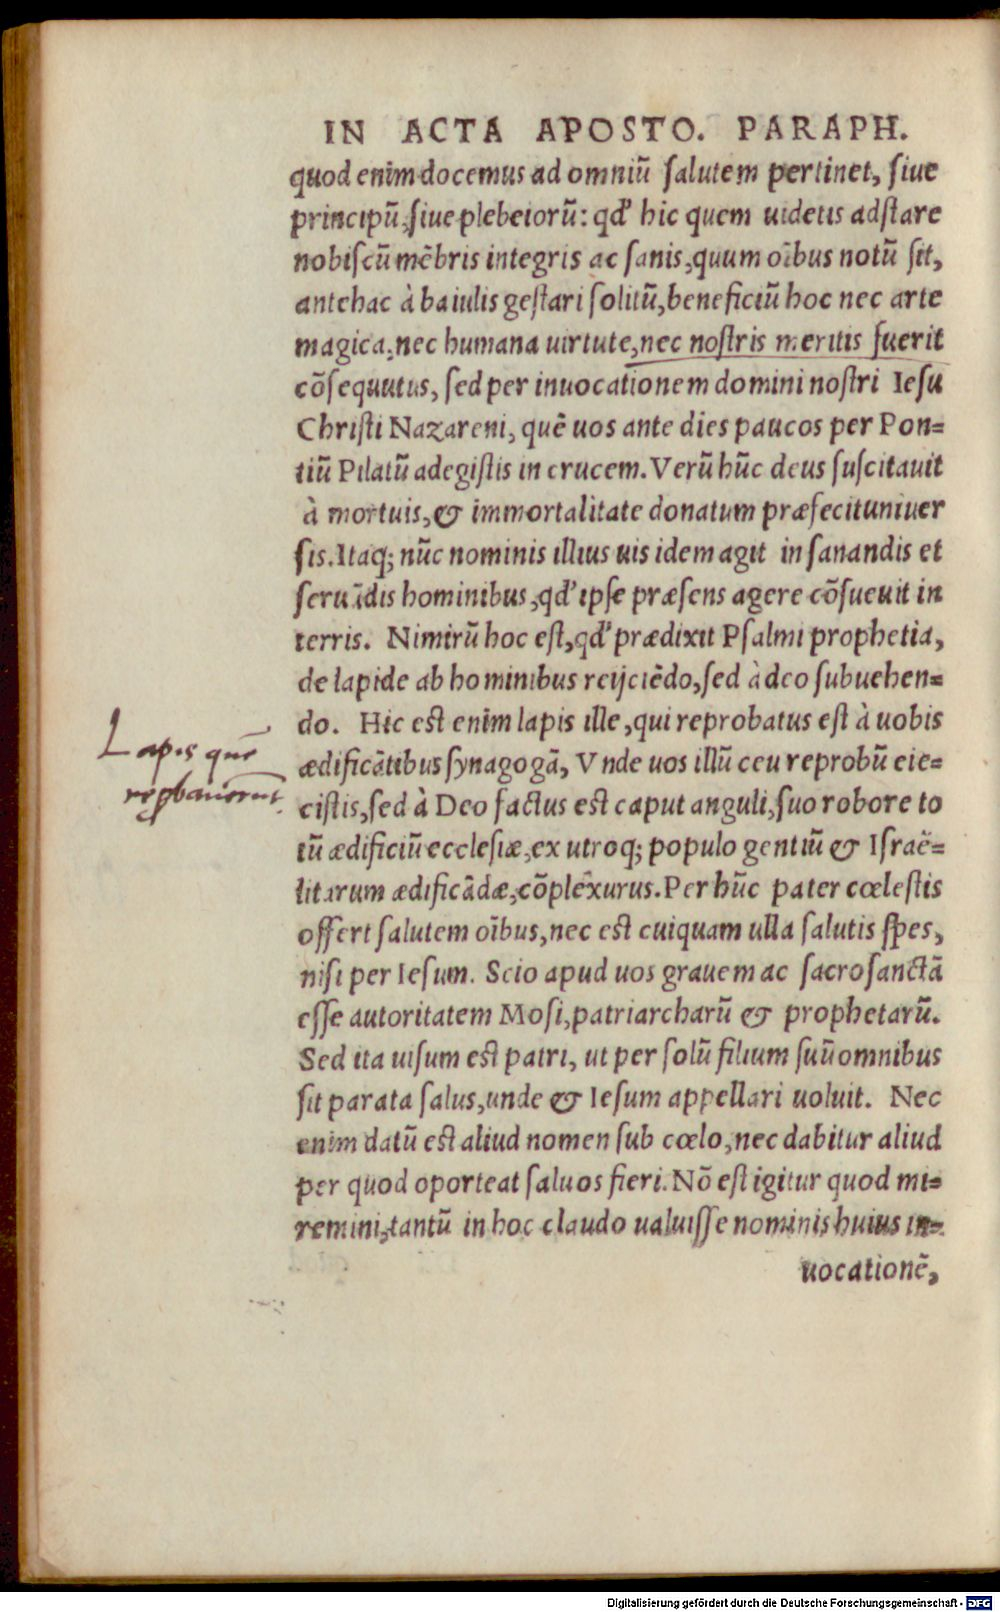 IN ACTA APOSTO. PARAPH.
quod enim docemus ad omniũ salutem pertinet, siue
principũ, siue plebeiorũ: qd' hic quem uidetis adstare
nobiscũ mẽbris integris ac sanis, quum oĩbus notũ sit,
antehac à baiulis gestari solitũ, beneficiũ hoc nec arte
magica, nec humana uirtute, nec nostris meritis fuerit
cõsequutus, sed per inuocationem domini nostri Iesu
Christi Nazareni, quẽ uos ante dies paucos per Pon=
tiũ Pilatũ adegistis in crucem. Verũ hũc deus suscitauit
à mortuis, & immortalitate donatum præfecit uniuer
sis. Itaq; nũc nominis illius uis idem agit in sanandis et
seruãdis hominibus, qd' ipse præsens agere cõsueuit in
terris. Nimirũ hoc est, qd' prædixit Psalmi prophetia,
de lapide ab hominibus reijciẽdo, sed à deo subuehen=
do. Hic est enim lapis ille, qui reprobatus est à uobis
ædificãtibus synagogã, Vnde uos illũ ceu reprobũ eie=
Lapis quẽ
reprobauerunt.
cistis, sed à Deo factus est caput anguli, suo robore to
tũ ædificiũ ecclesiæ, ex utroq; populo gentiũ & Israë=
litarum ædificãdæ, cõplexurus. Per hũc pater cœlestis
offert salutem oĩbus, nec est cuiquam ulla salutis spes,
nisi per Iesum. Scio apud uos grauem ac sacrosanctã
esse autoritatem Mosi, patriarcharũ & prophetarũ.
Sed ita uisum est patri, ut per solũ filium suũ omnibus
sit parata salus, unde & Iesum appellari uoluit. Nec
enim datũ est aliud nomen sub cœlo, nec dabitur aliud
per quod oporteat saluos fieri. Nõ est igitur quod mi=
remini, tantũ in hoc claudo ualuisse nominis huius in=
uocationẽ,
Digitalisierung gefördert durch die Deutsche Forschungsgemeinschaft - DFG